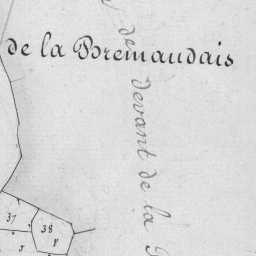 de la Bremaudais
de devant de la
37
38